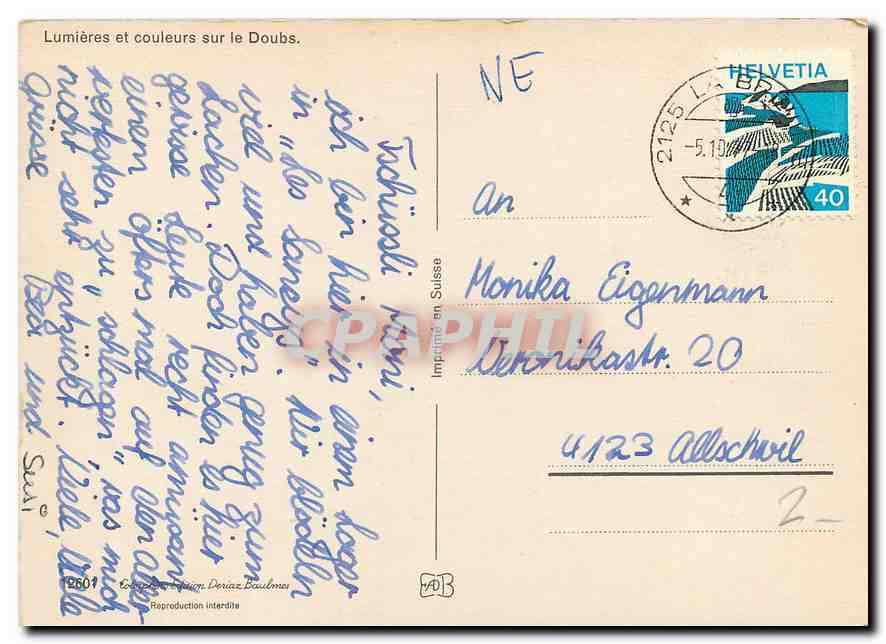 Lumières et couleurs sur le Doubs.
Tschüssli Moni,
ich bin hier in einem Lager
in "Les Saneys". Wir blödeln
viel und haben genug zum
Lachen. Doch finden es hier
gewisse Leute recht amüsant
einem öfters mal auf den Aller-
wertesten zu "schlagen", was mich
nicht sehr entzückt. Viele liebe
Grüsse Baei und Susi
12601
Colorphoto Edition Deriaz Baulmes
Reproduction interdite
Imprimé en Suisse
NE
HELVETIA
40
2125 LA BR
-5.10.
An
Monika Eigenmann
Veronikastr. 20
4123 Allschwil
2.-
CPAPHIL